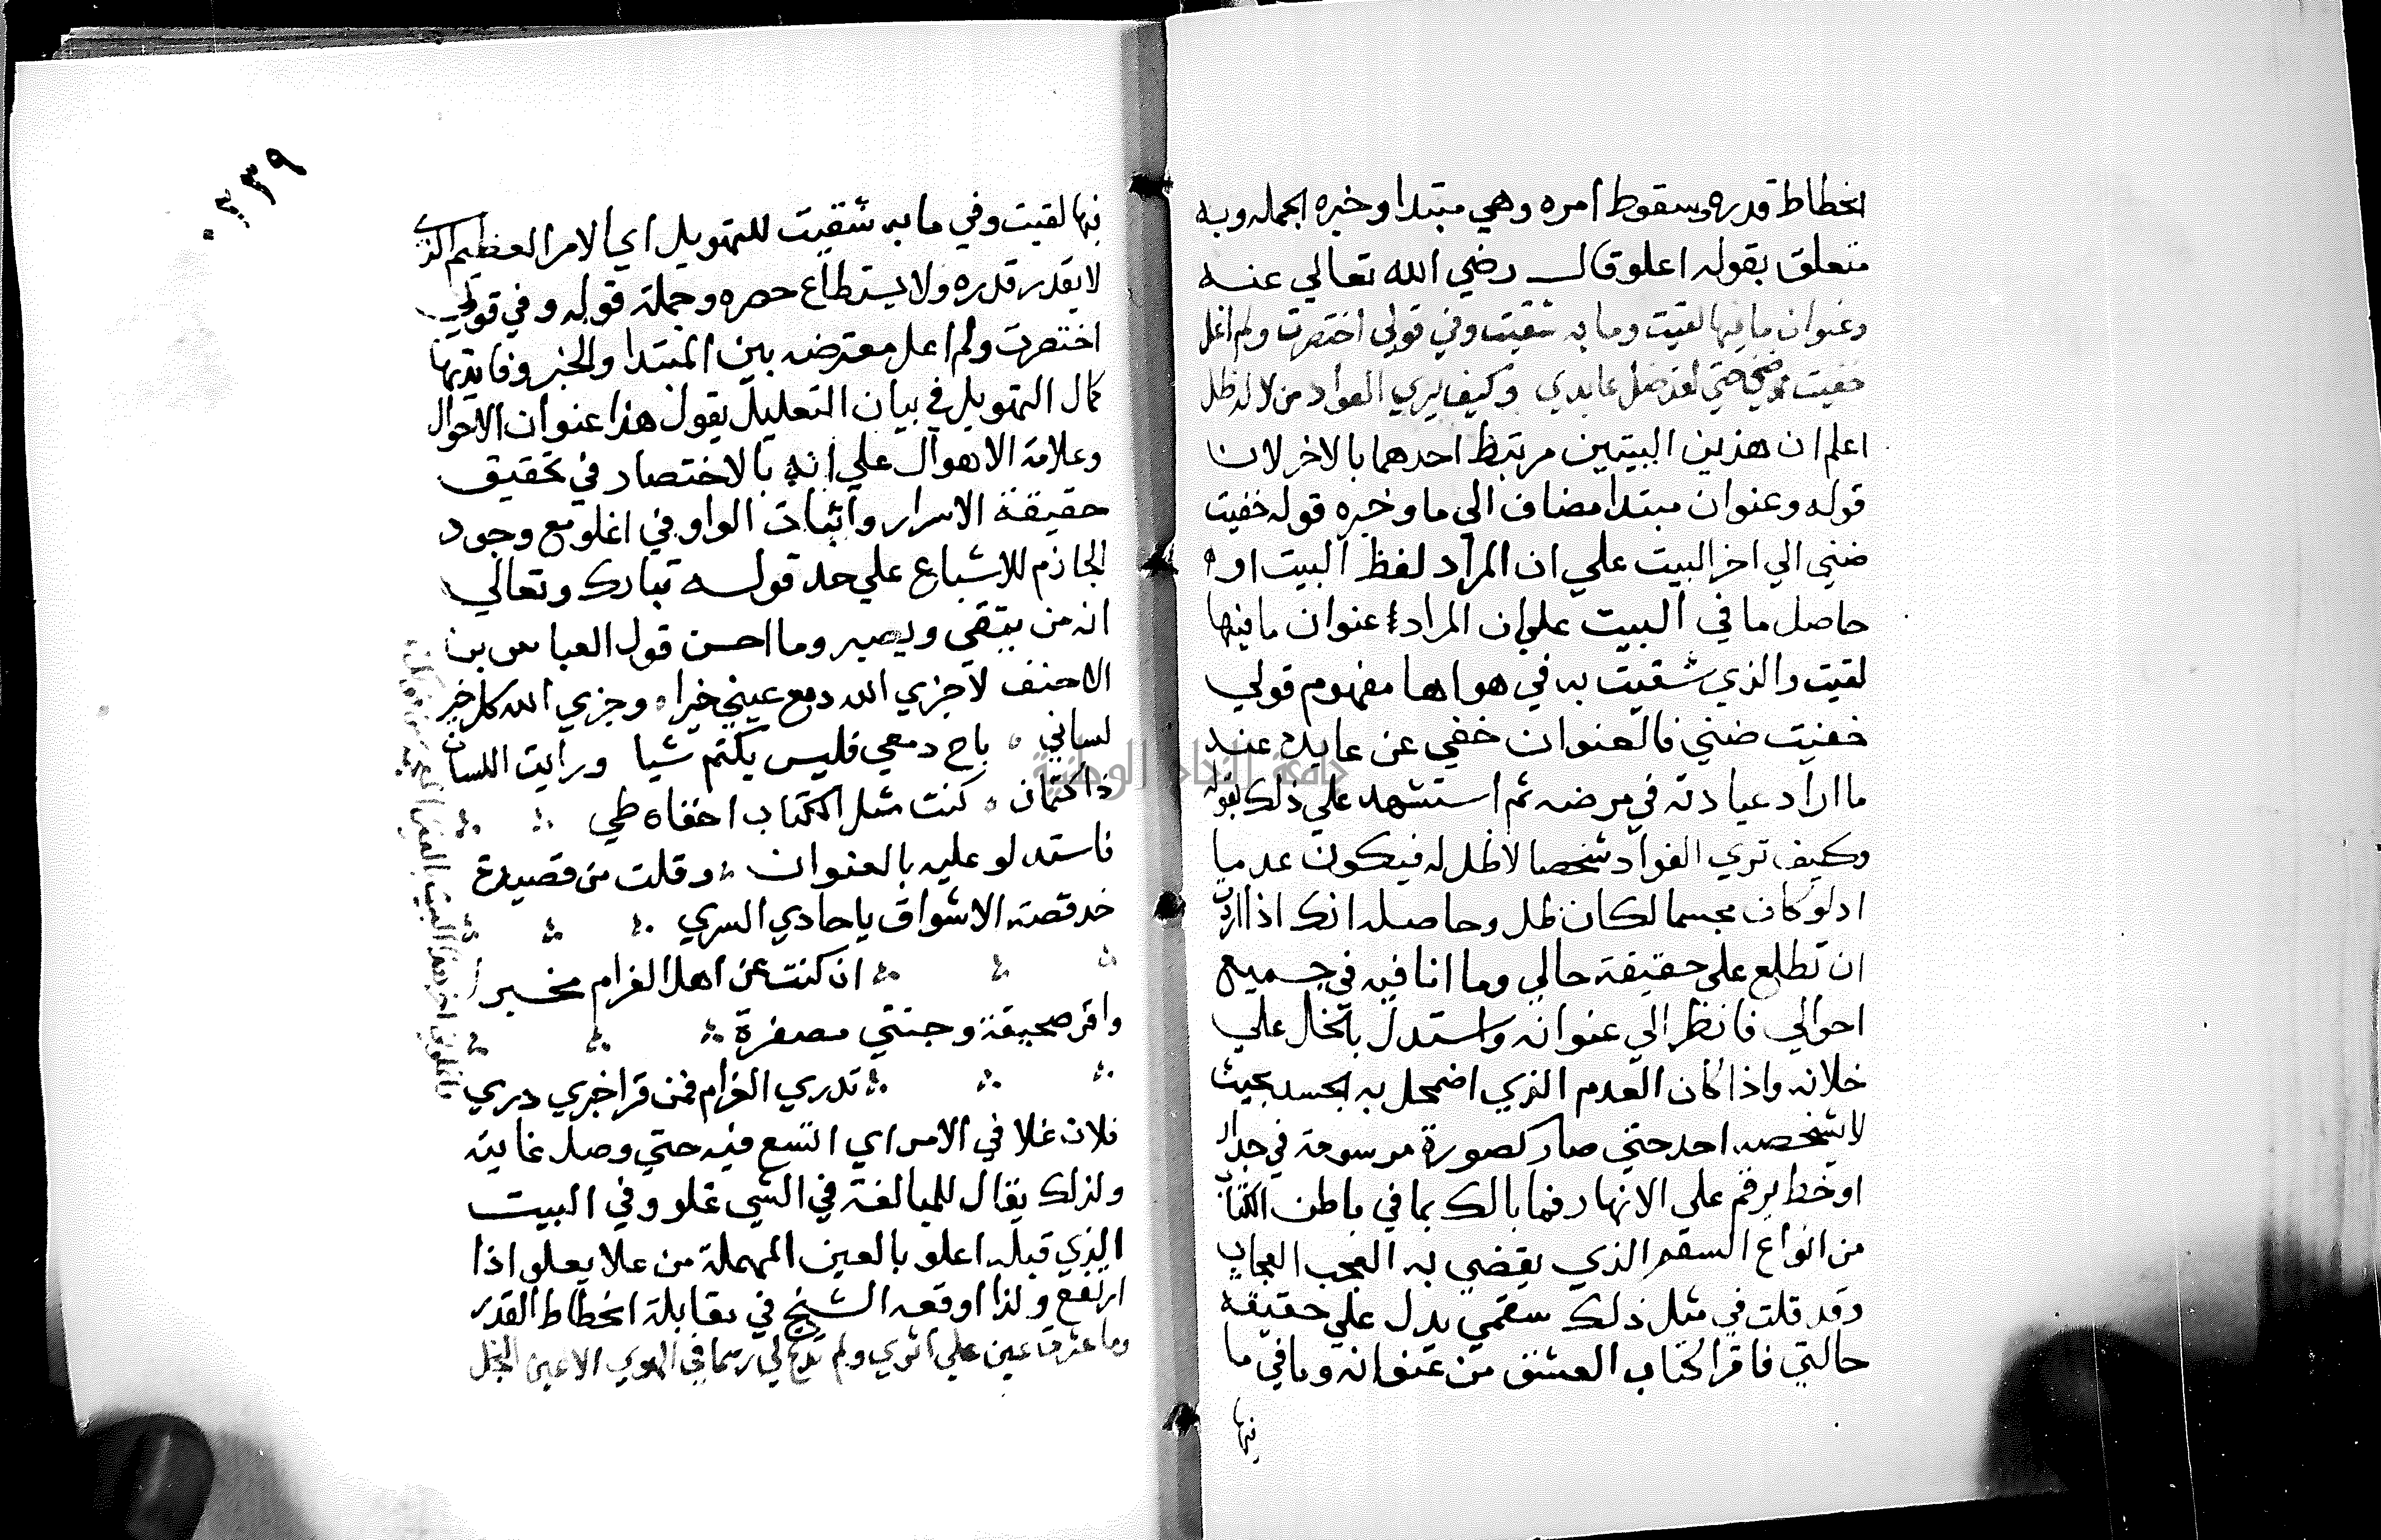 انحطاط قدره وسقوط امره وهي مبتدا وخبره الجمله وبه
متعلق بقوله اعلو قال رضي الله تعالي عنه
وعنوان ما فيها لقيت وما به شقيت وفي قولي اختصرت ولم اغل
خفيت ضني حتي لقد ضل عايدي وكيف يري العواد من لا له ظل
اعلم ان هذين البيتين مرتبط احدهما بالاخر لان
قوله وعنوان مبتدا مضاف الي ما وخبره قوله خفيت
ضني الي اخر البيت علي ان المراد لفظ البيت او
حاصل ما في البيت علي ان المراد عنوان ما فيها
لقيت والذي شقيت به في هواها مفهوم قولي
خفيت ضني فالعنوان خفي عن عايد عند
ما اراد عيادته في مرضه ثم استشهد علي ذلك بقوله
وكيف تري العواد شخصا لا ظل له فيكون عدميا
اد لو كان مجسما لكان ظل وحاصله انك اذا اردت
ان تطلع علي حقيقة حالي وما انا فيه في جميع
احوالي فانظر الي عنوانه واستدل بالخال علي
خلانه واذا كان العدم الذي اضمحل به الجسد بحيث
لا يشخصه احد حتي صار كصورة مرسومة في جدار
او خط يرقم علي الانهار فما بالك بما في باطن الكتاب
من انواع السقم الذي يقضي به العجب العجاب
وقد قلت في مثل ذلك سقمي يدل علي حقيقة
حالتي فاقرا كتاب العشق من عنوانه وما في ما
فيها
٢٣٩
فيها لقيت وفي ما به شقيت للتهويل اي الامر العظيم الذي
لا يقدر قدره ولا يستطاع حصره وجملة قوله وفي قولي
اختصرت ولم اعل معترضه بين المبتدا والخبر وفايدتها
كمال التهويل في بيان التعليل يقول هذا عنوان الاحوال
وعلامة الاهوال علي انه بالاختصار في تحقيق
حقيقة الاسرار واثبات الواو في اغلو مع وجود
الجازم للاشباع علي حد قوله تبارك وتعالي
انه من يتقي ويصبر وما احسن قول العباس بن
الاحنف لا جزي الله دمع عيني خيرا وجزي الله كل خير
لساني باح دمعي فليس يكتم شيا ورايت اللسان
ذا كتمان كنت مثل الكتاب اخفاه طي
فاستدلو عليه بالعنوان وقلت من قصيدة
خد قصة الاشواق يا حادي السري
ان كنت عن اهل الغرام مخبرا
واقر صحيفة وجنتي مصفرة
تدري الغرام فمن قرا خبري دري
فلان غلا في الامر اي اتسع فيه حتي وصل غايته
ولذلك يقال للمبالغة في الشي غلو وفي البيت
الذي قبله اعلو بالعين المهملة من علا يعلو اذا
ارتفع ولذا اوقعه الشيخ في مقابلة انحطاط القدر
وما عثرت عين علي اثري ولم تدع لي رسما في الهوي الاعين النجل
جامعة النجاح الوطنية